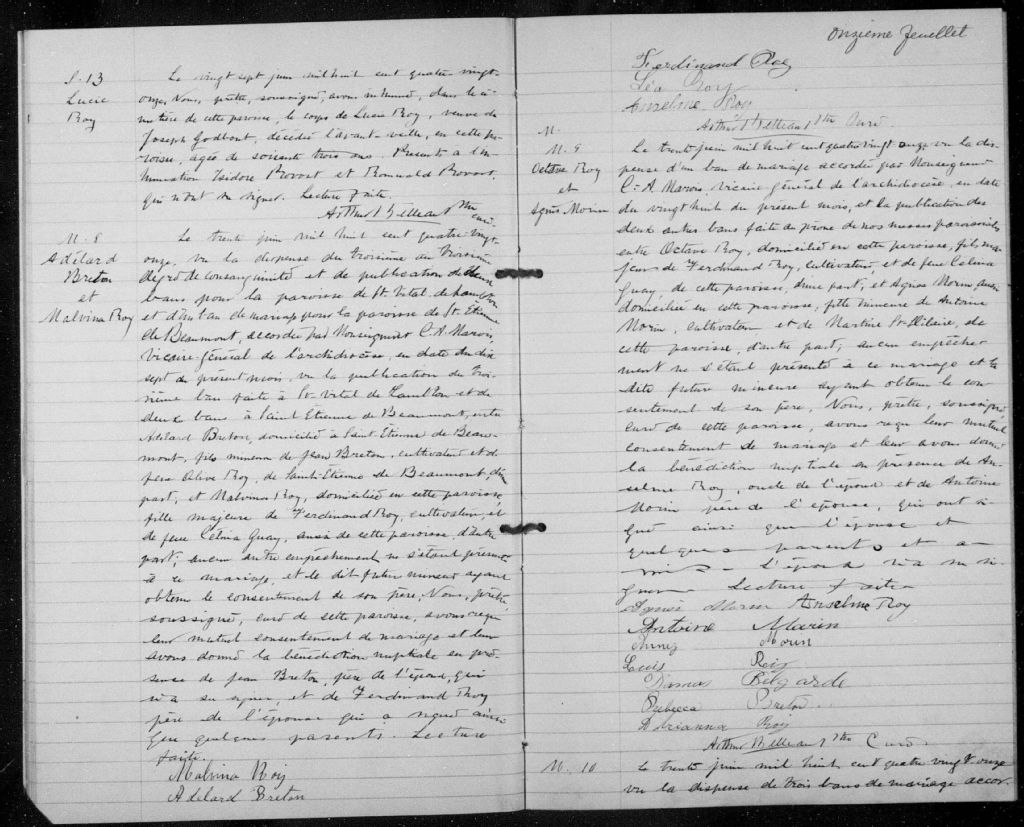 S. 13
Lucie
Roy
Le vingt sept juin mil huit cent quatre-vingt-
onze, Nous, prêtre, soussigné, avons inhumé, dans le ci-
metière de cette paroisse, le corps de Lucie Roy, veuve de
Joseph Godbout, décédée l'avant veille, en cette pa-
roisse, agée de soixante trois ans. Présents à l'in-
humation Isidore Provost et Romuald Provost,
qui n'ont su signer. Lecture faite.
Arthur Belleau Ptre curé.
M. 8
Adélard
Breton
et
Malvina Roy
Le trente juin mil huit cent quatre-vingt-
onze, vu la dispense du troisième au troisième
dégré de consanguinité et de publication de deux
bans pour la paroisse de St. Vital de Lambton
et d'un ban de mariage pour la paroisse de St. Etienne
de Beaumont, accordée par Monseigneur C. A. Marois,
Vicaire-général de l'archidiocèse, en date du dix
sept du présent mois, vu la publication du troi-
sième ban faite à St-Vital de Lambton et de
deux bans à Saint Etienne de Beaumont, entre
Adélard Breton, domicilié à Saint Etienne de Beau-
mont, fils mineur de Jean Breton, cultivateur et de
feue Olive Roy, de Saint-Etienne de Beaumont, d'une
part, et Malvina Roy, domiciliée en cette paroisse
fille majeure de Ferdinand Roy, cultivateur, et
de feue Celina Guay, aussi de cette paroisse d'autre
part; aucun autre empêchement ne s'étant présenté
à ce mariage, et le dit futur mineur ayant
obtenu le consentement de son père, Nous, prêtre
soussigné, curé de cette paroisse, avons reçu
leur mutuel consentement de mariage et leur
avons donné la bénédiction nuptiale en pré-
sence de Jean Breton, père de l'époux, qui
n'a su signer, et de Ferdinand Roy
père de l'épouse qui a signé ainsi
que quelques parents. Lecture
faite.
Malvina Roy
Adélard Breton
Onzième feuillet
Ferdinand Roy
Léa Roy
Anselme Roy
Arthur Belleau Ptre Curé.
M.
M. 9
Octave Roy
et
Agnès Morin
Le trente juin mil huit cent quatre vingt onze vu la dis-
pense d'un ban de mariage accordée par Monseigneur
C.-A. Marois, vicaire général de l'archidiocèse, en date
du vingt huit du présent mois, et la publication des
deux autres bans faite au prône de nos messes paroissiales
entre Octave Roy, domicilié en cette paroisse, fils ma-
jeur de Ferdinand Roy, cultivateur, et de feue Celina
Guay, de cette paroisse, d'une part, et Agnès Morin, aussi
domiciliée en cette paroisse, fille mineure de Antoine
Morin, cultivateur et de Martine St-Hilaire, de
cette paroisse, d'autre part; aucun empêche-
ment ne s'étant présenté à ce mariage et la
dite future mineure ayant obtenu le con-
sentement de son père, Nous, prêtre, soussigné,
curé de cette paroisse, avons reçu leur mutuel
consentement de mariage et leur avons donné
la bénédiction nuptiale en présence de An-
selme Roy, oncle de l'époux et de Antoine
Morin père de l'épouse, qui ont si-
gné ainsi que l'épouse et
quelques parents et a-
mis. L'époux n'a su si-
gner. Lecture faite.
Agnès Morin Anselme Roy
Antoine Morin
Morin
Luis Roy
Damas Belgarde
Rebecca Breton
Adrianna Roy
Arthur Belleau Ptre Curé
M. 10
Le trente juin mil huit cent quatre vingt onze
vu la dispense de trois bans de mariage accor-